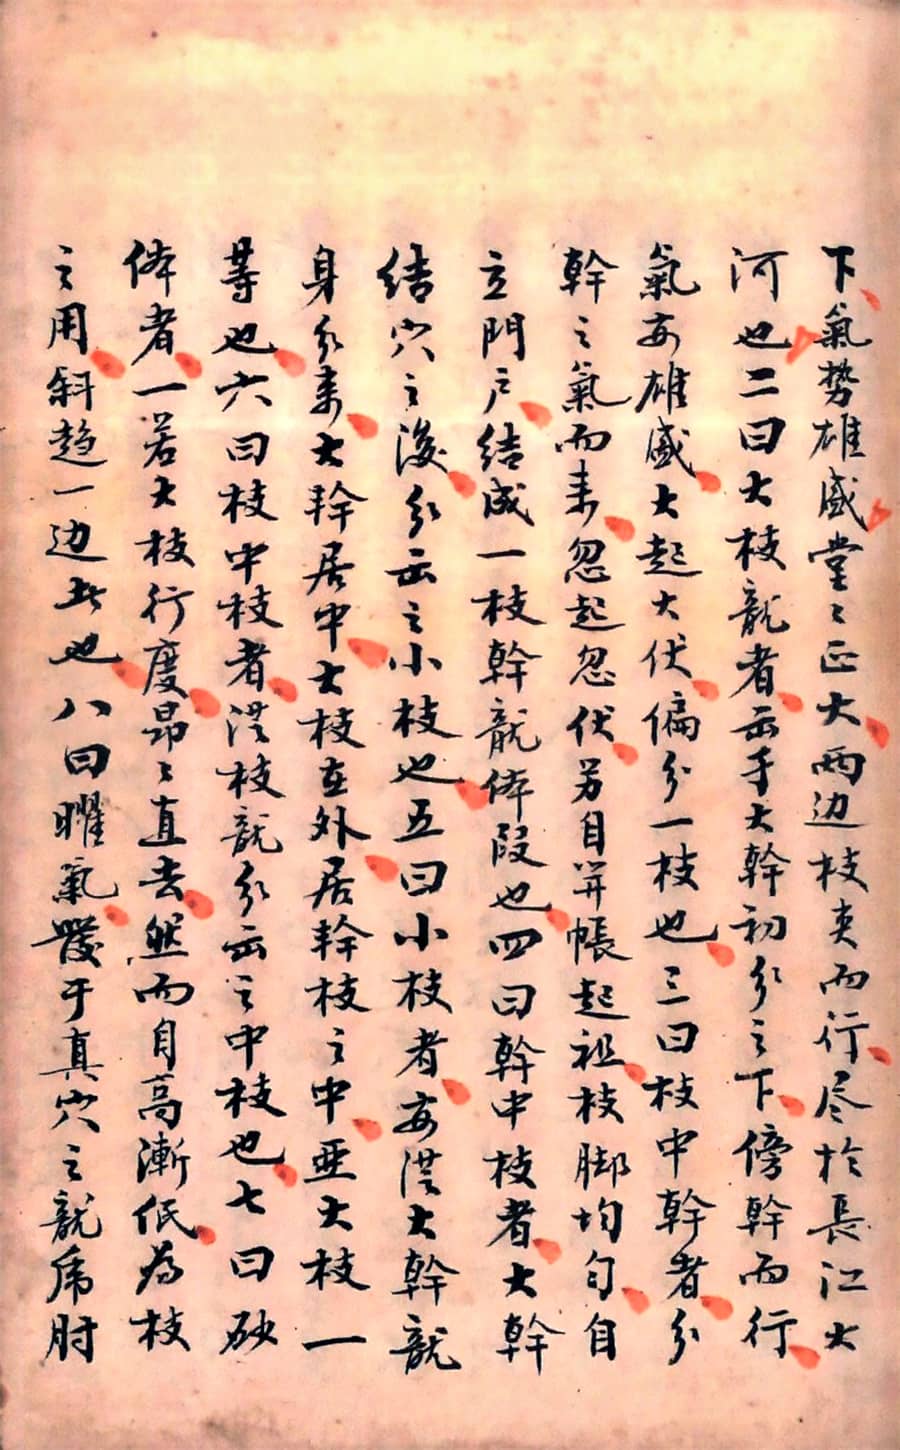 下氣势雄盛堂〻正大两边枝夾而行尽於長江大
河也二曰大枝龍者出于大幹初分之下傍幹而行
氣亦雄盛大起大伏偏分一枝也三曰枝中幹者分
幹之氣而来忽起忽伏另自开帳起祖枝脚均匀自
立門户结成一枝幹龍体段也四曰幹中枝者大幹
结穴之後分出之小枝也五曰小枝者亦從大幹龍
身分来大幹居中大枝在外居幹枝之中亚大枝一
等也六曰枝中枝者從枝龍分出之中枝也七曰砂
体者一若大枝行度昂〻直去然而自高漸低為枝
之用斜趋一边者也八曰曜氣發于真穴之龍虎肘